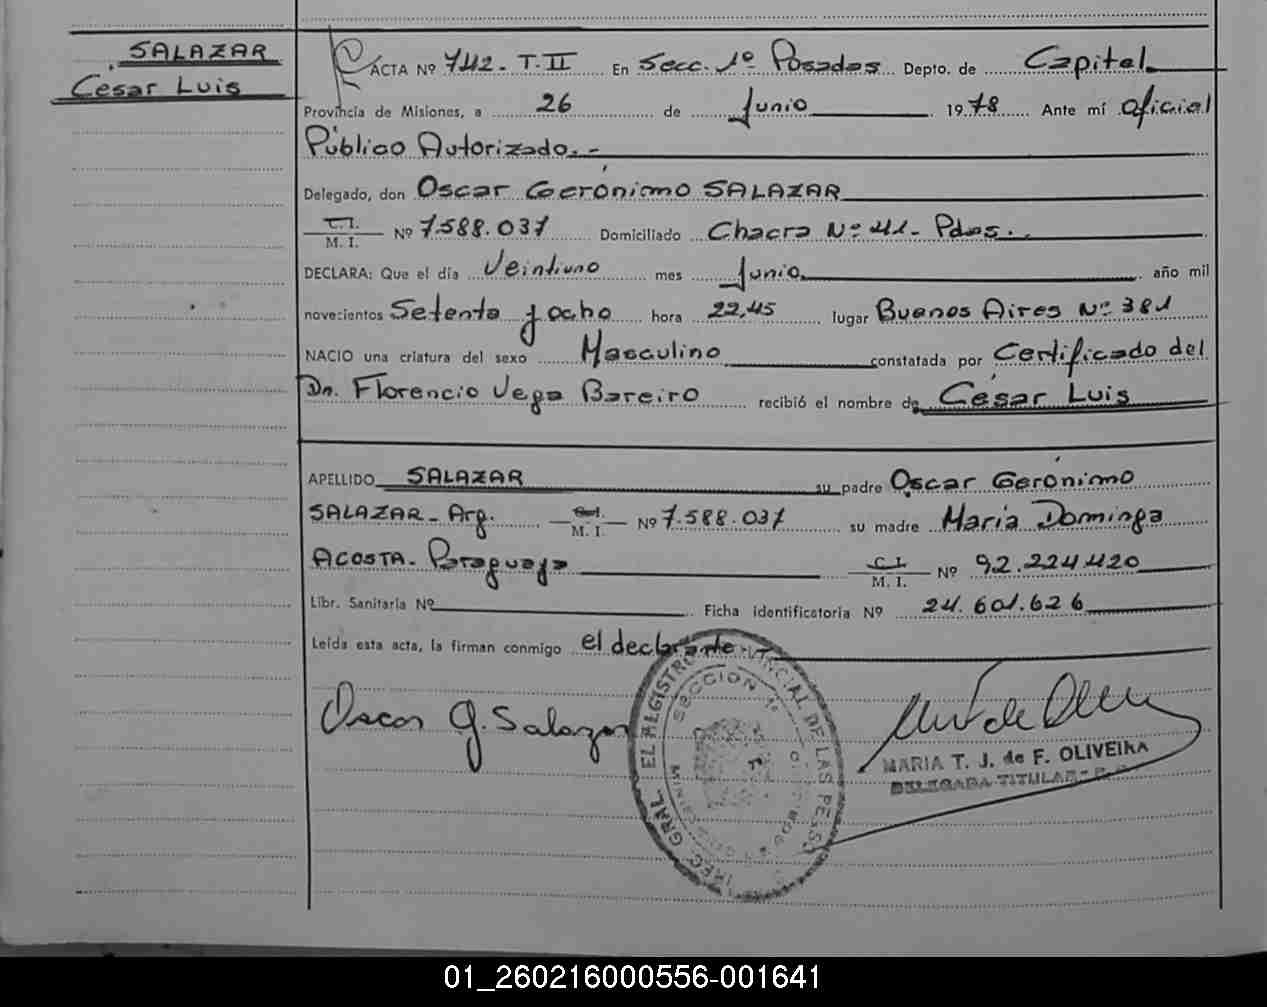 SALAZAR
César Luis
ACTA Nº 742 - T. II En Secc. 1º Posadas Depto. de Capital
Provincia de Misiones, a 26 de Junio 1978 Ante mí Oficial
Público Autorizado. -
Delegado, don Oscar Gerónimo SALAZAR
C.I.
M. I. Nº 7.588.037 Domiciliado Chacra Nº 41 - Pdas.
DECLARA: Que el día Veintiuno mes Junio año mil
novecientos Setenta y ocho hora 22,45 lugar Buenos Aires Nº 381
NACIO una criatura del sexo Masculino constatada por Certificado del
Dr. Florencio Vega Bareiro recibió el nombre de César Luis
APELLIDO SALAZAR su padre Oscar Gerónimo
SALAZAR - Arg. M. I. Nº 7.588.037 su madre María Dominga
ACOSTA - Paraguaya C. I.
M. I. Nº 92.224.420
Libr. Sanitaria Nº Ficha identificatoria Nº 24.601.626
Leída esta acta, la firman conmigo el declarante
Oscar G. Salazar
SECCION 1a
DE LAS PERSO
MARIA T. J. de F. OLIVEIRA
DELEGADA TITULAR
01_260216000556-001641